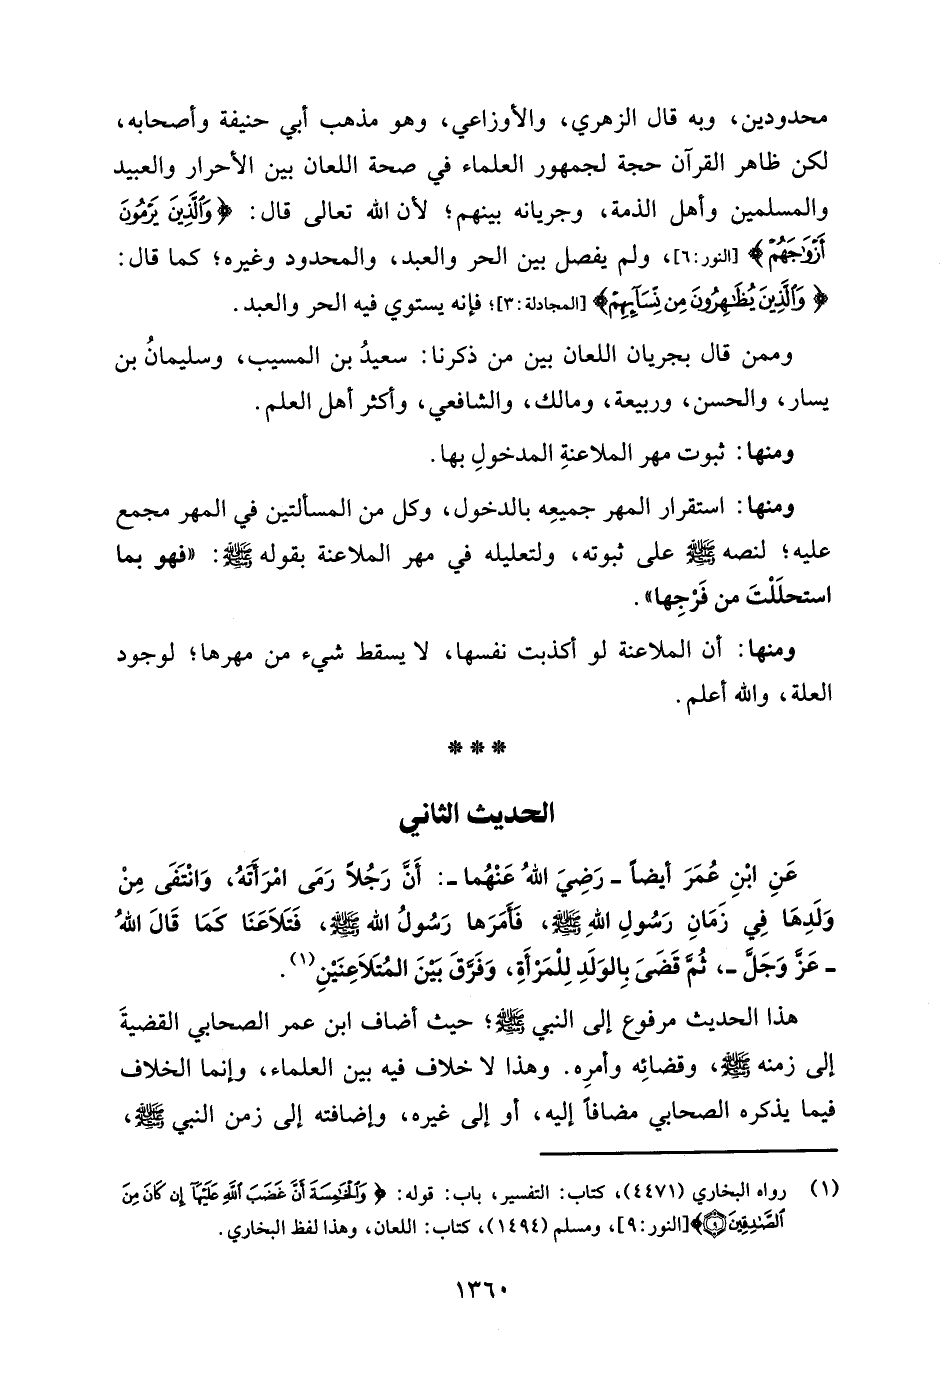 محدودين، وبه قال الزهري، والأوزاعي، وهو مذهب أبي حنيفة وأصحابه،
لكن ظاهر القرآن حجة لجمهور العلماء في صحة اللعان بين الأحرار والعبيد
والمسلمين وأهل الذمة، وجريانه بينهم؛ لأن الله تعالى قال: ﴿وَٱلَّذِينَ يَرۡمُونَ
أَزۡوَٰجَهُمۡ﴾ [النور: ٦]، ولم يفصل بين الحر والعبد، والمحدود وغيره؛ كما قال:
﴿وَٱلَّذِينَ يُظَٰهِرُونَ مِن نِّسَآئِهِمۡ﴾ [المجادلة: ٣]؛ فإنه يستوي فيه الحر والعبد.
وممن قال بجريان اللعان بين من ذكرنا: سعيدُ بن المسيب، وسليمانُ بن
يسار، والحسن، وربيعة، ومالك، والشافعي، وأكثر أهل العلم.
ومنها: ثبوت مهر الملاعنةِ المدخولِ بها.
ومنها: استقرار المهر جميعِه بالدخول، وكل من المسألتين في المهر مجمع
عليه؛ لنصه ﷺ على ثبوته، ولتعليله في مهر الملاعنة بقوله ﷺ: «فهو بما
استحلَلْتَ من فَرْجِها».
ومنها: أن الملاعنة لو أكذبت نفسها، لا يسقط شيء من مهرها؛ لوجود
العلة، والله أعلم.
* * *
الحديث الثاني
عَنِ ابْنِ عُمَرَ أيضاً ـ رَضِيَ اللهُ عَنْهُما ـ: أَنَّ رَجُلاً رَمَى امْرَأَتَهُ، وَانْتَفَى مِنْ
وَلَدِهَا فِي زَمَانِ رَسُولِ اللهِ ﷺ، فَأَمَرَها رَسُولُ اللهِ ﷺ، فَتَلاَعَنَا كَمَا قَالَ اللهُ
ـ عَزَّ وَجَلَّ ـ، ثُمَّ قَضَىَ بِالوَلَدِ لِلْمَرْأَةِ، وَفَرَّقَ بَيْنَ المُتَلاَعِنَيْنِ(١).
هذا الحديث مرفوع إلى النبي ﷺ؛ حيث أضاف ابن عمر الصحابي القضيةَ
إلى زمنه ﷺ، وقضائِه وأمرِه. وهذا لا خلاف فيه بين العلماء، وإنما الخلاف
فيما يذكره الصحابي مضافاً إليه، أو إلى غيره، وإضافته إلى زمن النبي ﷺ،
(١) رواه البخاري (٤٤٧١)، كتاب: التفسير، باب: قوله: ﴿وَٱلۡخَٰمِسَةَ أَنَّ غَضَبَ ٱللَّهِ عَلَيۡهَآ إِن كَانَ مِنَ
ٱلصَّٰدِقِينَ ٩﴾ [النور: ٩]، ومسلم (١٤٩٤)، كتاب: اللعان، وهذا لفظ البخاري.
١٣٦٠